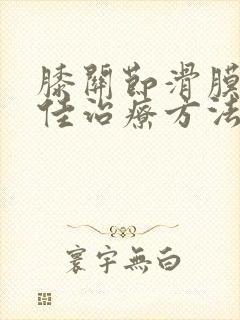 膝關節滑膜
佳治療方法
寰宇無白